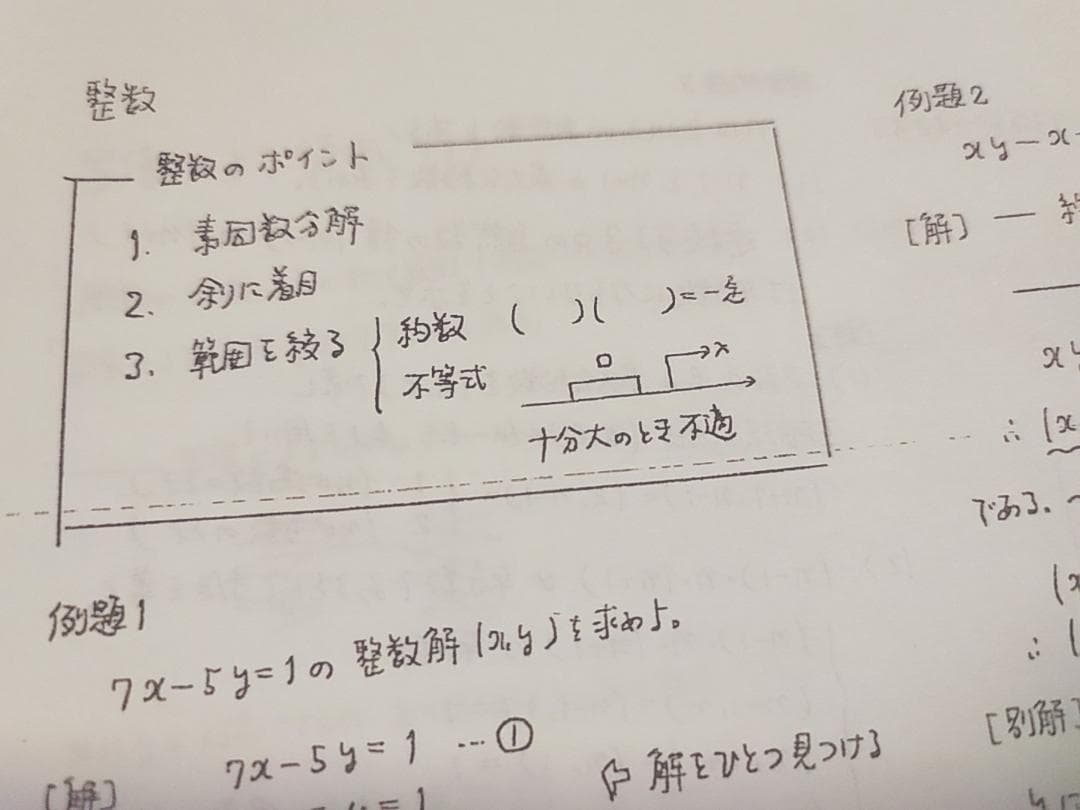 整数
整数のポイント
1. 素因数分解
2. 余りに着目
3. 範囲を絞る
約数 ( )( )=一定
不等式
x
十分大のとき不適
例題1
7x-5y=1の整数解(x,y)を求めよ。
7x-5y=1 …①
⇦ 解をひとつ見つける
[解]
例題2
xy-x-
[解]
xy
∴ (x
である.
(x
∴ (
[別解]